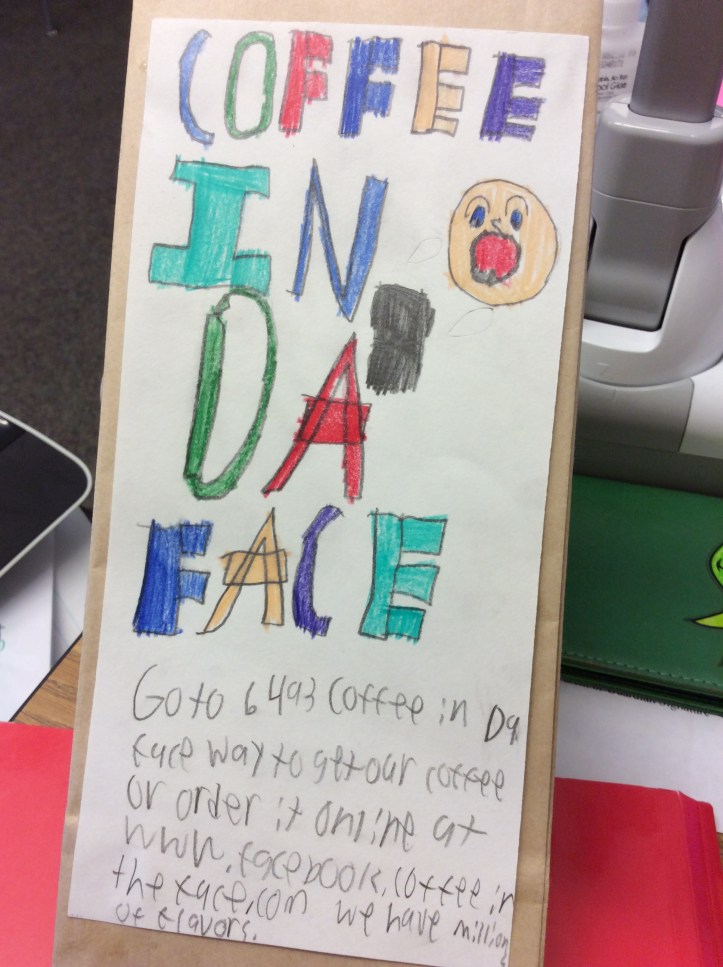 COFFEE
IN
DA
FACE
Go to 6493 Coffee in Da
face way to get our coffee
or order it online at
www.facebook.coffee in
the face.com we have millions
of flavors.